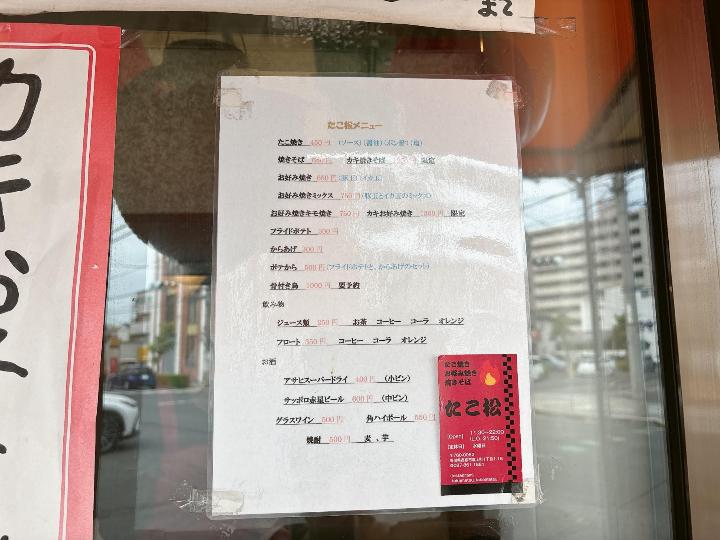 まで
カキお
たこ松メニュー
たこ焼き 450円 (ソース)(醤油)(ポン酢)(塩)
焼きそば 円 カキ焼きそば 限定
お好み焼き 650円(豚玉)(イカ玉)
お好み焼きミックス 750円(豚玉とイカ玉のミックス)
お好み焼きキモ焼き 750円 カキお好み焼き 円 限定
フライドポテト 300円
からあげ 300円
ポテから 500円(フライドポテトと、からあげのセット)
骨付き鳥 1000円 要予約
飲み物
ジュース類 250円 お茶 コーヒー コーラ オレンジ
フロート 350円 コーヒー コーラ オレンジ
お酒
アサヒスーパードライ 400円 (小ビン)
サッポロ赤星ビール 600円 (中ビン)
グラスワイン 500円 角ハイボール 550円
焼酎 500円 麦、芋
たこ焼き
お好み焼き
焼きそば
たこ松
[Open] 11:30~22:00
(L.O. 21:50)
[定休日] 水曜日